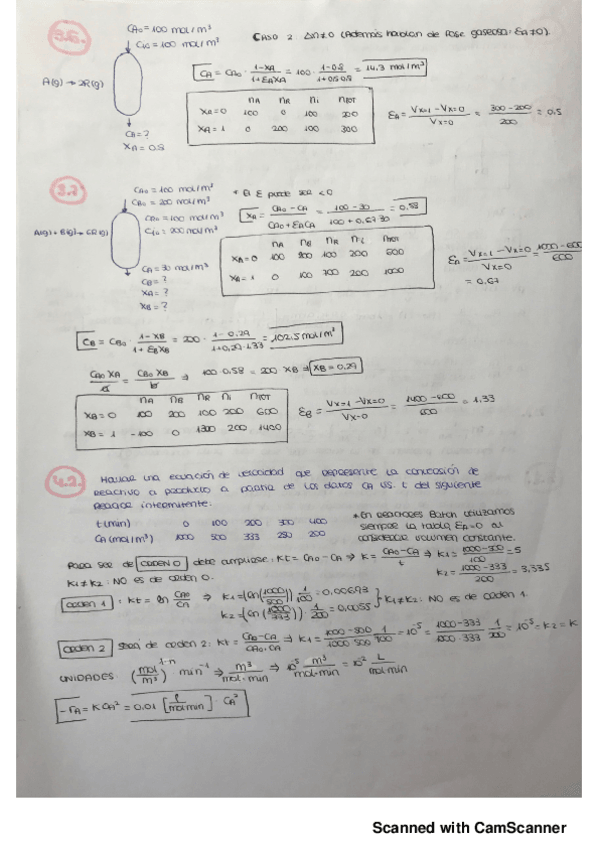 3.6.
CA0 = 100 mol/m³
Ci0 = 100 mol/m³
CASO 2. Δn≠0 (Además hablan de fase gaseosa: εA≠0).
A(g) → 2R(g)
CA = CA0 · (1-XA)/(1+εAXA) = 100 · (1-0.8)/(1+0.5·0.8) = 14.3 mol/m³
CA = ?
XA = 0.8
nA nR ni nTOT
XA = 0 100 0 100 200
XA = 1 0 200 100 300
εA = (Vx=1 - Vx=0)/Vx=0 = (300-200)/200 = 0.5
3.7.
CA0 = 100 mol/m³
CB0 = 200 mol/m³
CR0 = 100 mol/m³
Ci0 = 200 mol/m³
* El ε puede ser < 0
XA = (CA0 - CA)/(CA0 + εACA) = (100-30)/(100+0.67·30) = 0.58
CA = 30 mol/m³
CB = ?
XA = ?
XB = ?
nA nB nR ni nTOT
XA = 0 100 200 100 200 600
XA = 1 0 100 200 1000
εA = (Vx=1 - Vx=0)/Vx=0 = (1000-600)/600
= 0.67
CB = CB0 · (1-XB)/(1+εBXB) = 200 · (1-0.29)/(1+0.29·1.33) = 102.5 mol/m³
CA0 XA / a = CB0 XB / b ⇒ 100·0.58 = 200 XB ⇒ XB = 0.29
nA nB nR ni nTOT
XB = 0 100 200 100 200 600
XB = 1 -100 0 1300 200 1400
εB = (Vx=1 - Vx=0)/Vx=0 = (1400-600)/600 = 1.33
4.2.
Hallar una ecuación de velocidad que represente la conversión de
reactivo a producto a partir de los datos CA vs. t del siguiente
reactor intermitente.
t (min) 0 100 200 300 400
CA (mol/m³) 1000 500 333 250 200
* En reacciones Batch utilizamos
siempre la tabla εA=0 al
considerar volumen constante.
Para ser de ORDEN 0 debe cumplirse: Kt = CA0 - CA ⇒ K = (CA0-CA)/t ⇒ K1 = (1000-500)/100 = 5
K2 = (1000-333)/200 = 3.335
K1≠K2: NO es de orden 0.
Orden 1: Kt = ln CA0/CA ⇒ K1 = (ln(1000/500)) 1/100 = 0.00693
K2 = (ln(1000/333)) · 1/200 = 0.0055
K1≠K2: NO es de orden 1.
Orden 2 será de orden 2: Kt = (CA0-CA)/(CA0·CA) ⇒ K1 = (1000-500)/(1000·500) · 1/100 = 10⁻⁵ = (1000-333)/(1000·333) · 1/200 = 10⁻⁵ = K2 = K
UNIDADES: (mol/m³)¹⁻ⁿ min⁻¹ ⇒ m³/(mol·min) ⇒ 10⁻⁵ m³/(mol·min) = 10⁻² L/(mol·min)
-rA = K CA² = 0.01 [l/(mol·min)] · CA²
Scanned with CamScanner